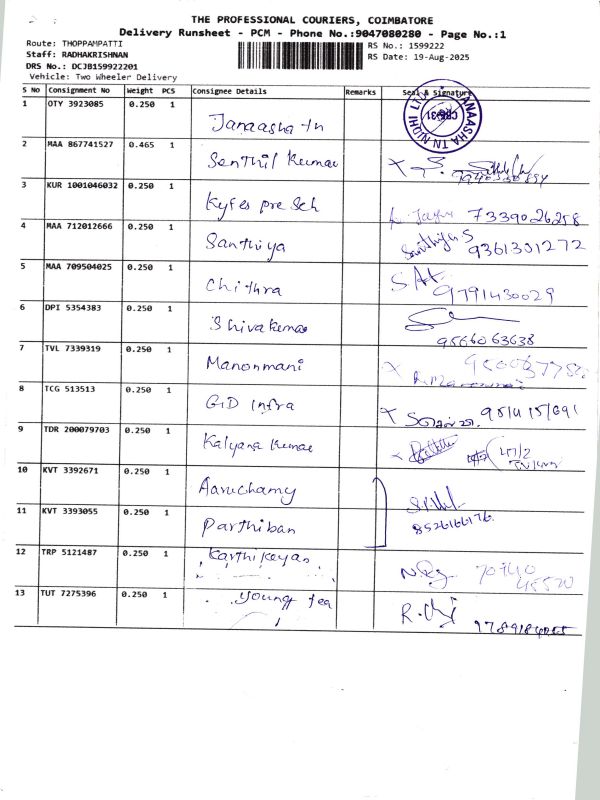 THE PROFESSIONAL COURIERS, COIMBATORE
Delivery Runsheet - PCM - Phone No.:9047080280 - Page No.:1
Route: THOPPAMPATTI
RS No.: 1599222
Staff: RADHAKRISHNAN
RS Date: 19-Aug-2025
DRS No.: DCJB159922201
Vehicle: Two Wheeler Delivery
S No Consignment No Weight PCS Consignee Details Remarks Seal & Signature
1 OTY 3923085 0.250 1 Janaasha tn
2 MAA 867741527 0.465 1 Senthil Kumar
3 KUR 1001046032 0.250 1 Kyfes pre Sch 7339026258
4 MAA 712012666 0.250 1 Santhiya Santhiya S 9361301272
5 MAA 709504025 0.250 1 Chithra 9791430029
6 DPI 5354383 0.250 1 Shivakumar 9566063638
7 TVL 7339319 0.250 1 Manonmani
8 TCG 513513 0.250 1 GD Infra
9 TDR 200079703 0.250 1 Kalyana Kumar
10 KVT 3392671 0.250 1 Aaruchamy
11 KVT 3393055 0.250 1 Parthiban 8526166176
12 TRP 5121487 0.250 1 Karthikeyan 70940 45520
13 TUT 7275396 0.250 1 Young tea